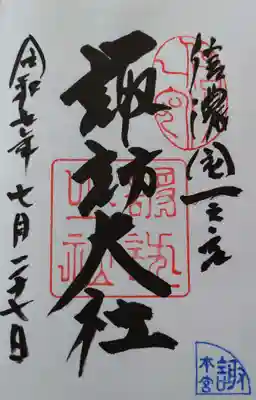 信濃國一之宮
諏訪大社
令和七年七月二十七日
諏訪
大社
諏
本宮